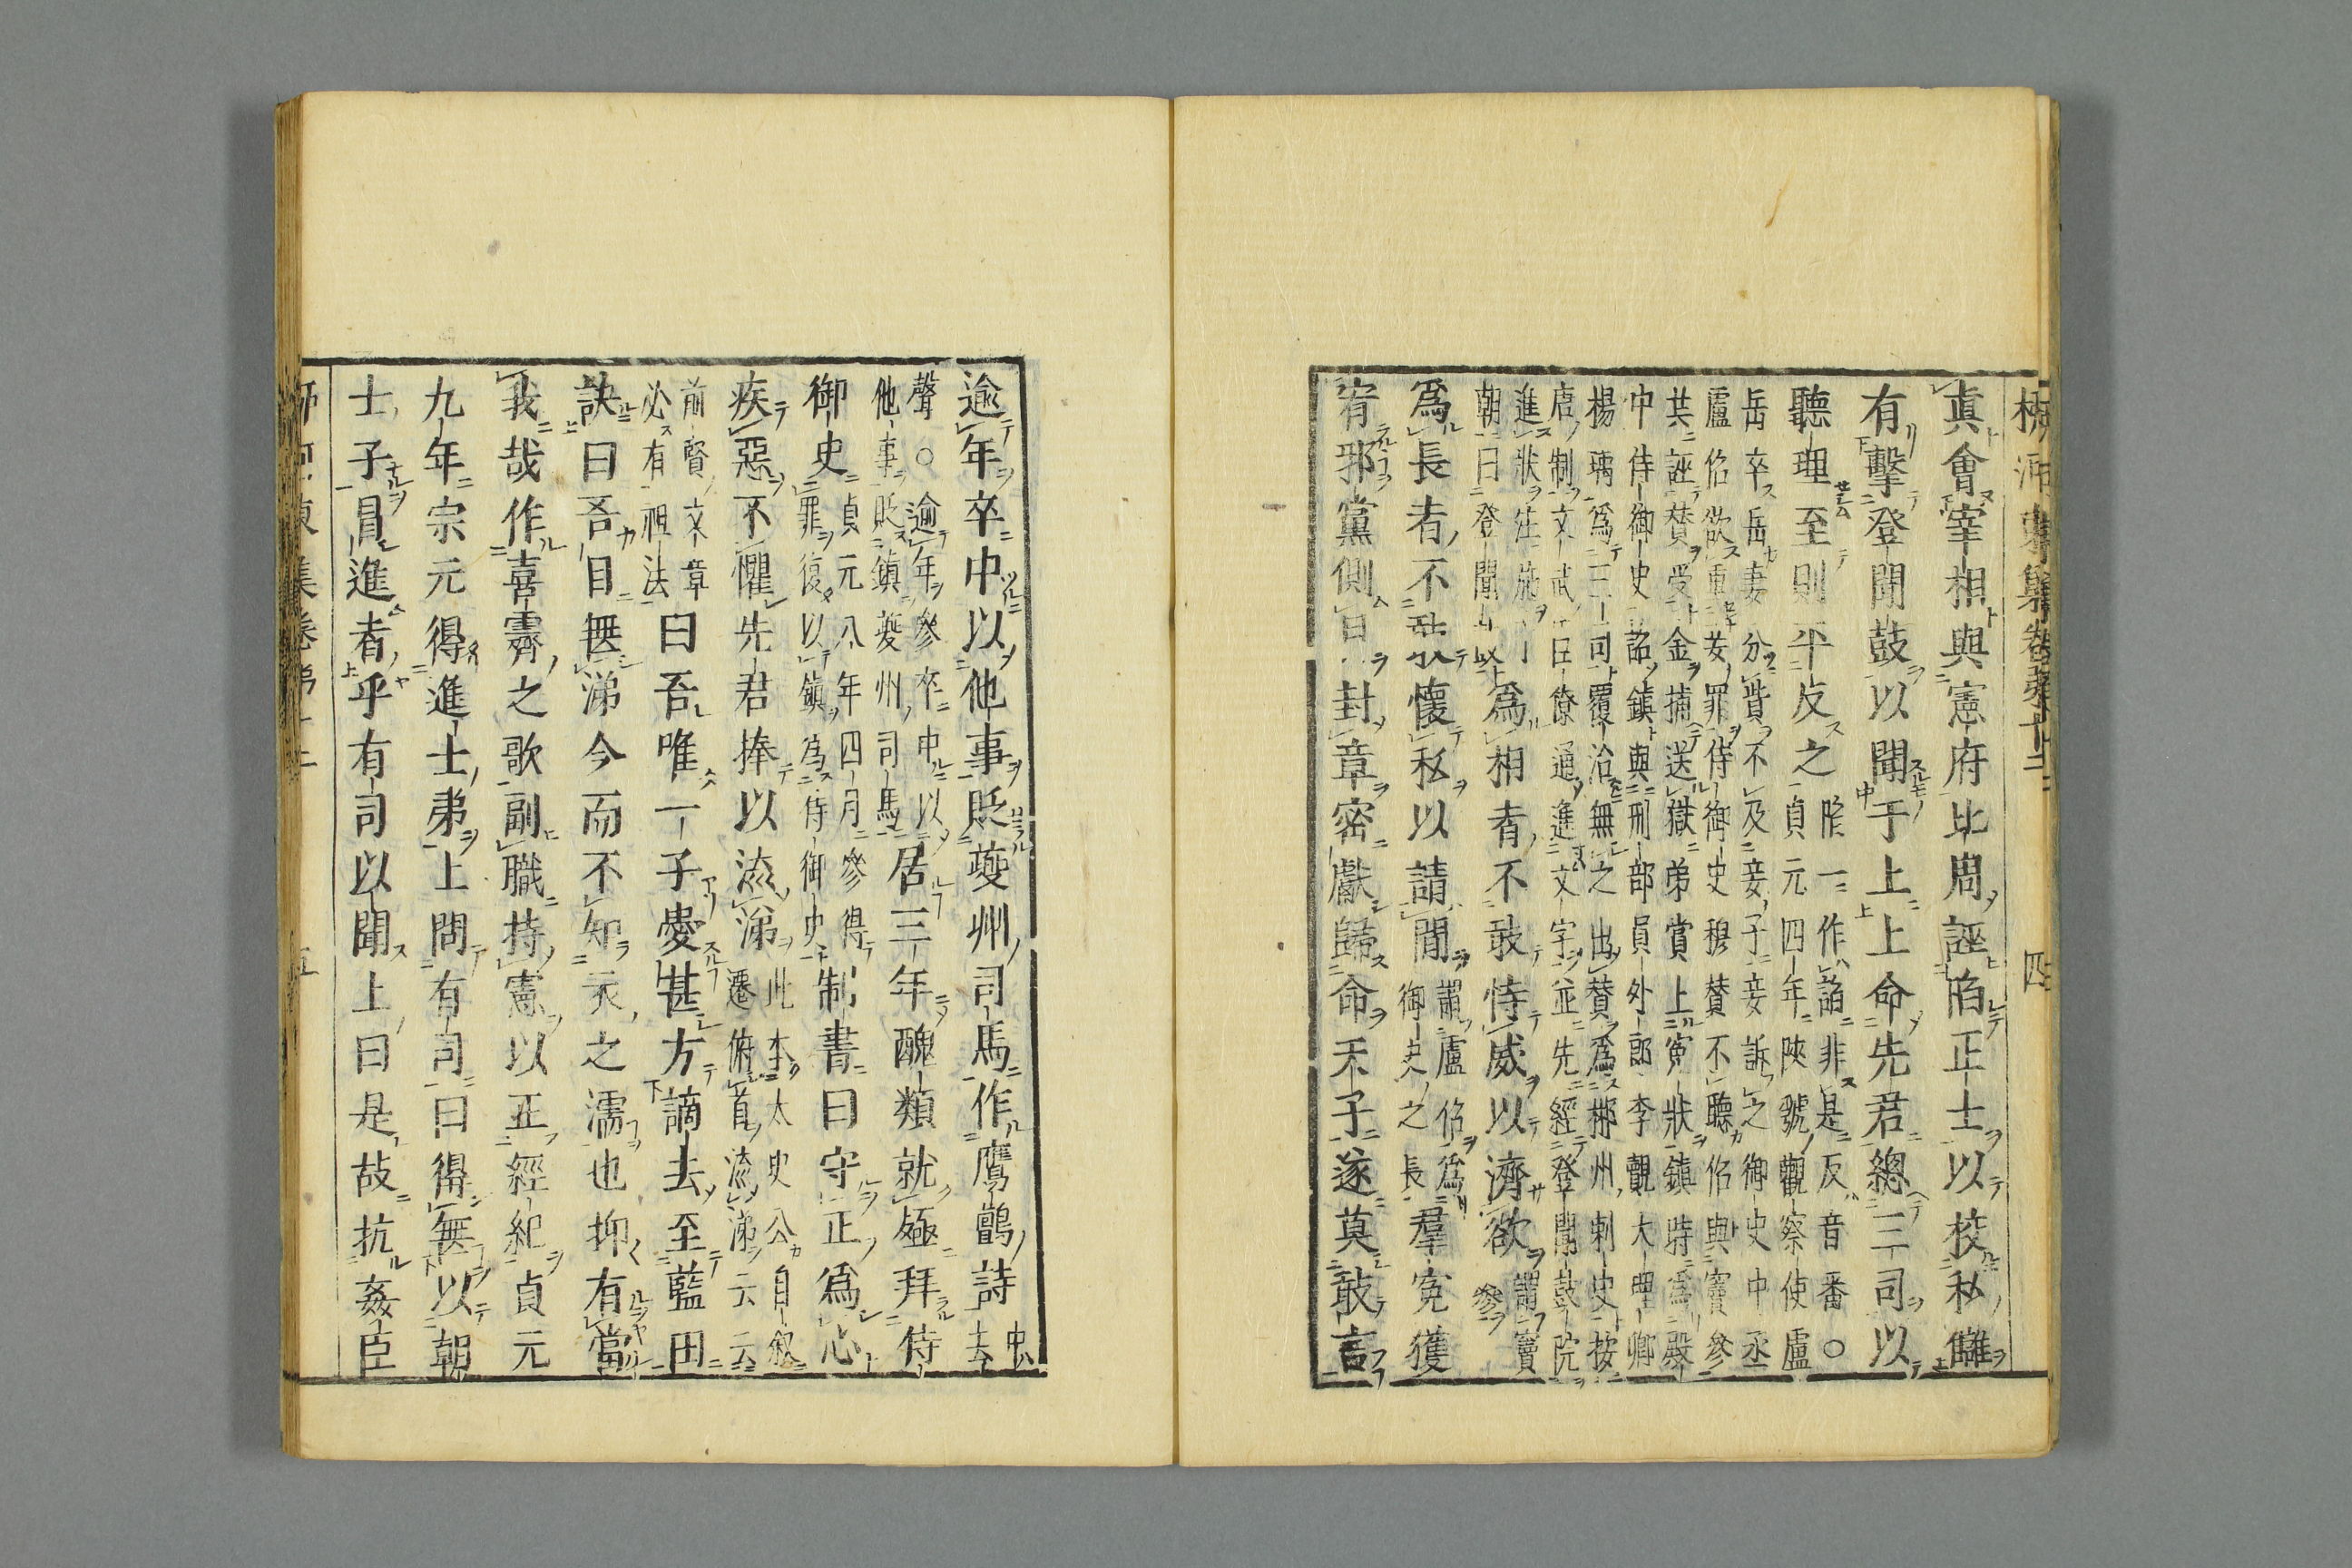 柳河東集卷第十二 四
眞會宰相與憲府比周誣陷正士以校私讎
有擊登聞鼓以聞于上上命先君總三司以
聽理至則平反之
陷一作諂非是反音番○
貞元四年陝虢觀察使盧
岳卒岳妻分貲不及妾子妾訴之御史中丞
盧佋欲重妾罪侍御史穆贊不聽佋與竇參
共誣贊受金捕送獄弟賞上寃狀鎮時爲殿
中侍御史詔鎮與刑部員外郎李覿大理卿
楊瑀爲三司覆治無之出贊爲郴州刺史按
唐制文武臣僚通進文字並先經登聞鼓院
進狀
朝曰登聞
爲相者不敢恃威以濟欲
謂竇
參
爲長者不敢懷私以請閒
謂盧佋爲
御史之長
羣寃獲
宥邪黨側目封章密獻歸命天子遂莫敢言
逾年卒中以他事貶夔州司馬作鷹鸇詩
中去
聲○逾年參卒中以
他事貶鎮夔州司馬
居三年醜類就殛拜侍
御史
貞元八年四月參得
罪復以鎮爲侍御史
制書曰守正爲心
疾惡不懼先君捧以流涕
此本太史公自叙
遷俯首流涕云云
前賢文章
必有祖法
曰吾唯一子愛甚方謫去至藍田
訣曰吾目無涕今而不知衣之濡也抑有當
我哉作喜霽之歌副職持憲以正經紀貞元
九年宗元得進士第上問有司曰得無以朝
士子冒進者乎有司以聞上曰是故抗姦臣
柳河東集卷第十二 五